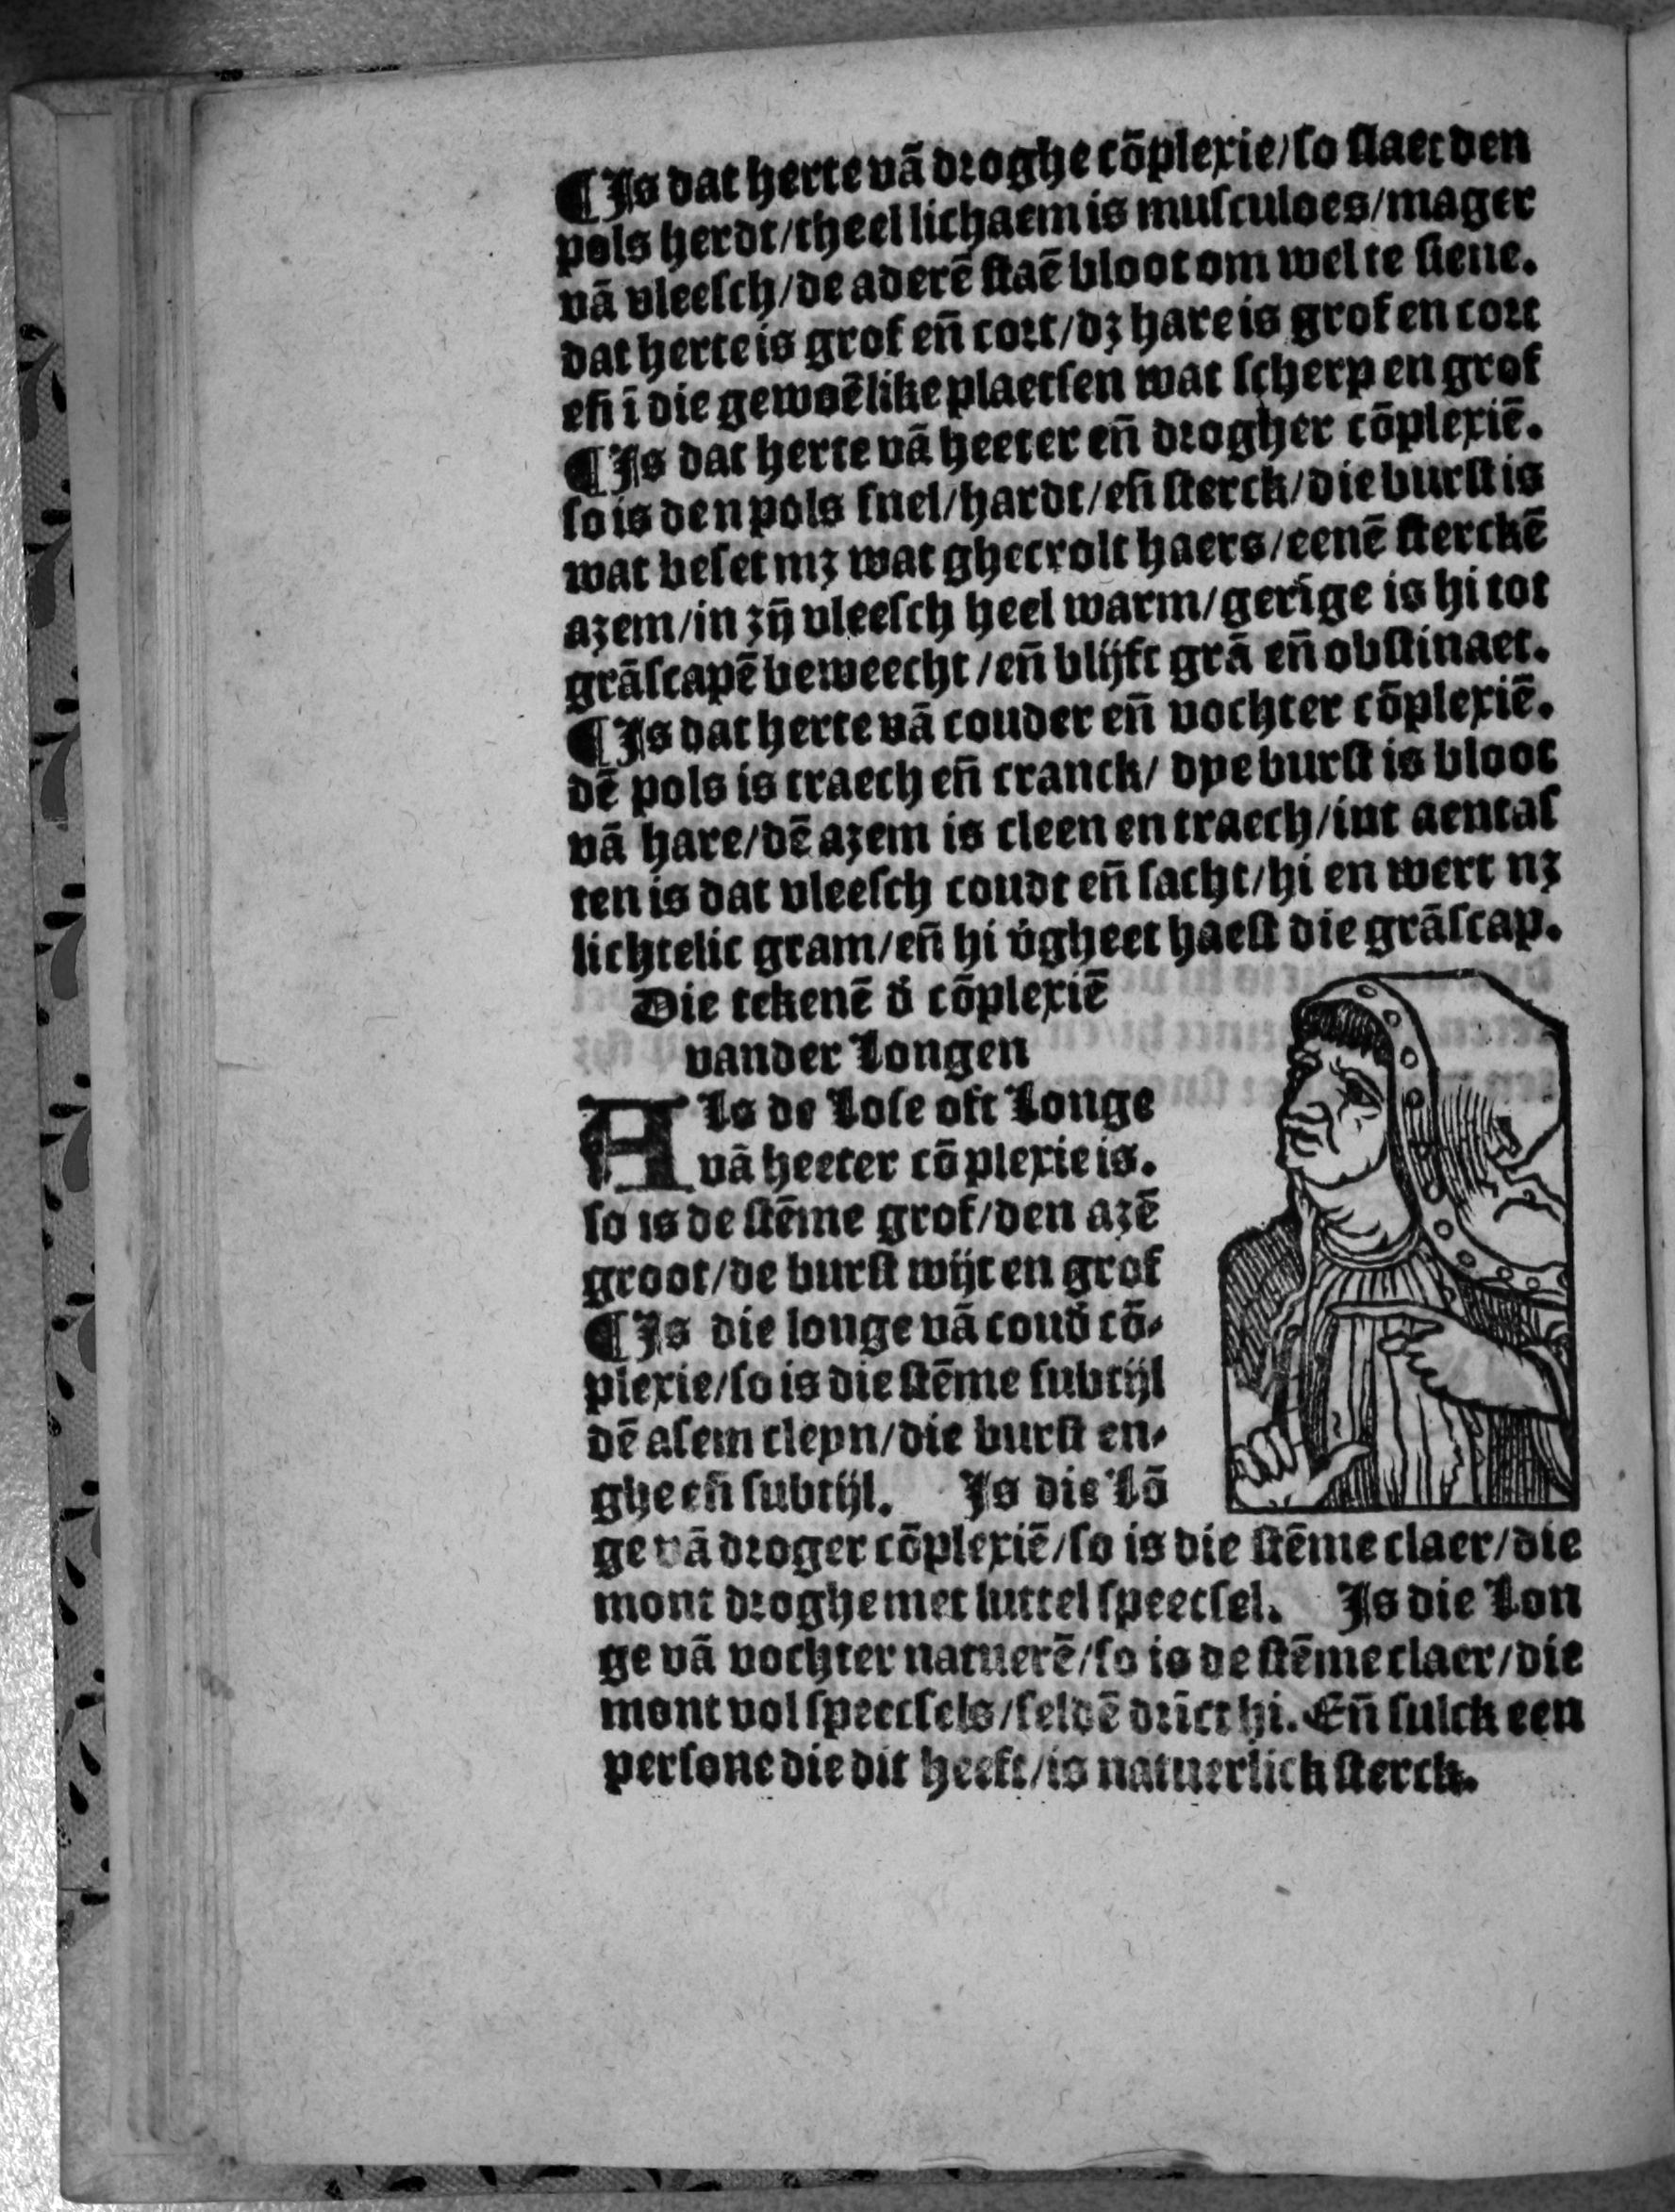 ¶Is dat herte vā droghe cōplexie/so slaet den
pols herdt/theel lichaem is musculoes/mager
vā vleesch/de aderē staē bloot om wel te siene.
dat herte is grof eñ cort/dꝫ hare is grof en cort
eñ ī die gewoēlike plaetsen wat scherp en grof
¶Is dat herte vā heeter eñ drogher cōplexiē.
so is den pols snel/hardt/eñ sterck/die burst is
wat beset mꝫ wat ghecrolt haers/eenē sterckē
azem/in zÿ vleesch heel warm/gerīge is hi tot
grāscapē beweecht/eñ blijft grā eñ obstinaet.
¶Is dat herte vā couder eñ vochter cōplexiē.
dē pols is traech eñ cranck/ dye burst is bloot
vā hare/dē azem is cleen en traech/int aentas
ten is dat vleesch coudt eñ sacht/hi en wert nꝫ
lichtelic gram/eñ hi v̄gheet haest die grāscap.
Die tekenē d̄ cōplexiē
vander Longen
Als de Lose oft Longe
vā heeter cōplexie is.
so is de stēme grof/den azē
groot/de burst wijt en grof
¶Is die longe vā coud̄ cō-
plexie/so is die stēme subtijl
dē asem cleyn/die burst en-
ghe eñ subtijl. Is die Lō
ge vā droger cōplexiē/so is die stēme claer/die
mont droghe met luttel speecsel. Is die Lon
ge vā vochter natuerē/so is de stēme claer/die
mont vol speecsels/seldē drīct hi. Eñ sulck een
persone die dit heeft/is natuerlick sterck.